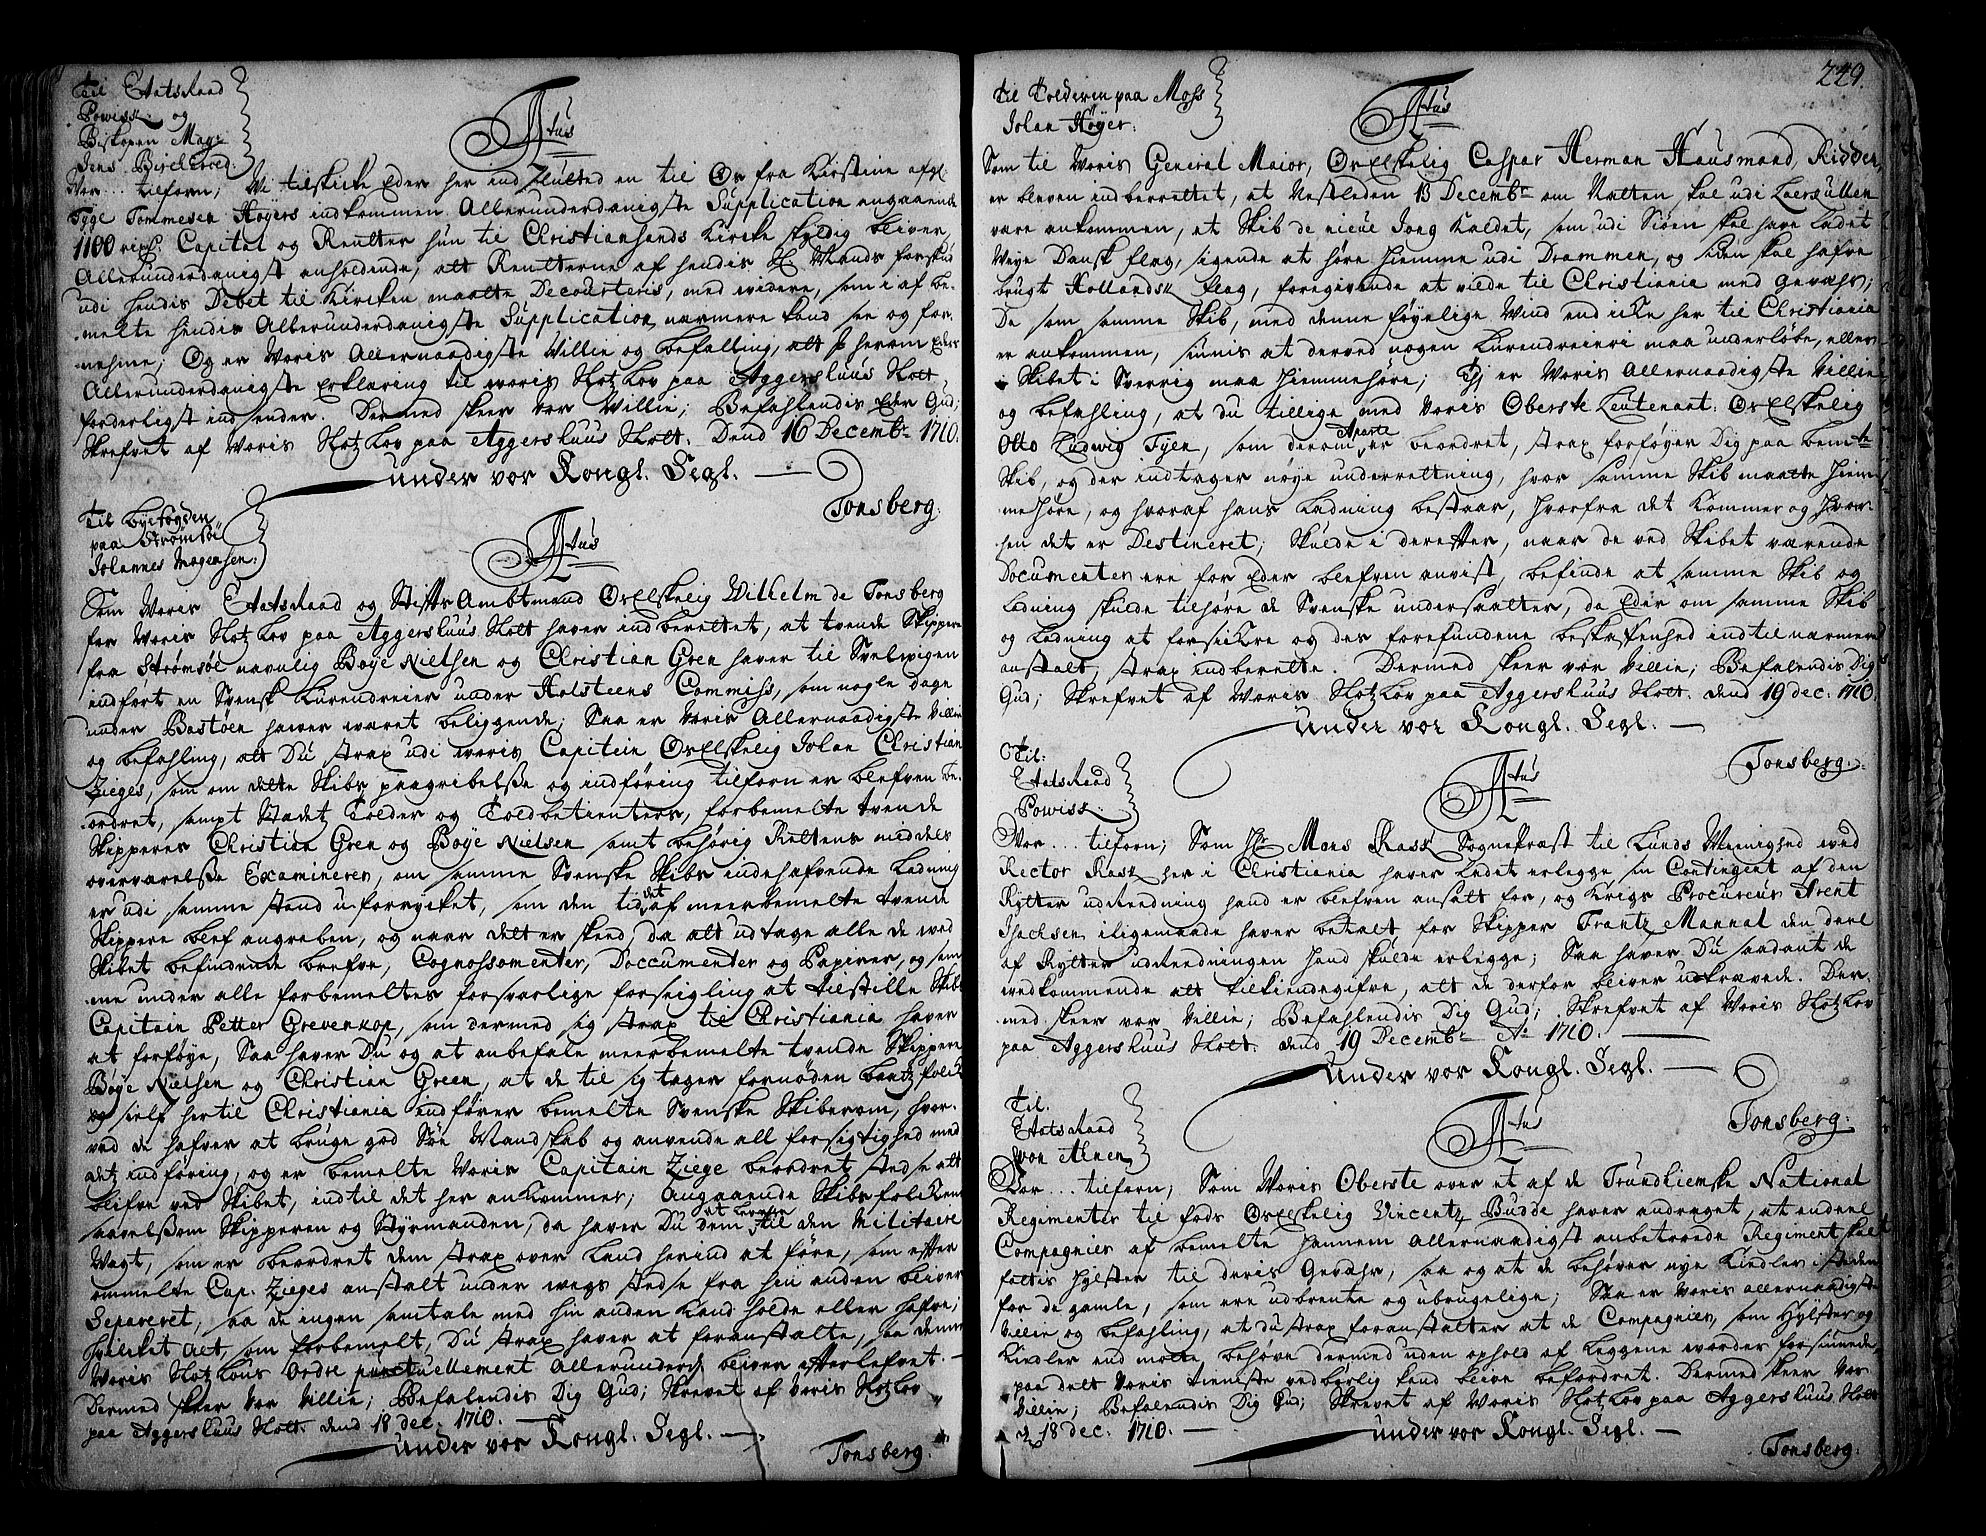 Til Etatsraad
Powisk og
Biskopen Mag:
Jens Bircherod.
Atus
Vor... tilforn; Vi tilskicke Eder her indslutted en til Os fra Kirstine afgl.
Tyge Tommesen Høyers indkommen Allerunderdanigste Supplication angaaende
1100 rixd. Capital og Rentter hun til Christiansands Kircke skyldig bliver,
Allerunderdanigst anholdende, att Rentterne af hendis Sl. Mands forskud
udi hendis Debet til Kircken maatte Decourteris, med widere, som i af be-
melte hendis Allerunderdanigste Supplication nærmere kand see og for-
nehme; Og er Voris Allernaadigste Villie og befalling, att I herom Eders
Allerunderdanigste Erklæring til woris Slotz Lov paa Aggershuus Slott
forderligst indsender. Dermed skeer Vor Willie; Befahlendis Eder Gud;
Skrefvet af Voris Slotz Lov paa Aggershuus Slott. Dend 16 Decembr 1710.
under vor Kongl. Segl.
Tonsberg.
Til byefogden
paa Strømsøe
Johannes Mogensen.
Atus
Som Voris Etatsraad og StiftsAmbtmand OsElskelig Wilhelm de Tonsberg
for Voris Slotz Lov paa Aggershuus Slott haver indberettet, at tvende Skippere
fra Strømsøe navnlig Boye Nielsen og Christian Gren haver til Svelwigen
indført en Svensk Kurendreier under Holsteens Commiss, som nogle dage
under Bastøen hawer wæret beliggende; Saa er Voris Allernaadigste Villie
og befahling, att Du strax udi woris Capitein OsElskelig Johan Christian
Zieges, som om dette Skibs paagribelse og indføring tilforn er blefven be-
ordret, sampt Stadet Tolder og Toldbetienters, forbemelte tvende
Skipperes Christian Gren og Boye Nielsen samt behørig Rettens middels
overværelse Examinerer, om samme Svenske Skibs indehafvende Ladning
er udi samme stand uforrycket, som den tid det af meerbemelte tvende
Skippere blef angreben, og naar dett er skeed, da att udtage alle de wed
Skibet befindende brefve, Cognossomenter, Doccumenter og Papirer, og sam-
me under alle forbemeltes forsvarlige forseigling at tilstille Skibs
Capitain Petter Grevenkop, som dermed sig strax til Christiania haver
at forføye, Saa haver Du og at anbefale meerbemelte tvende Skippere
Boye Nielsen og Christian Green, at de til sig tager fornøden baadzfolck
og self hertil Christiania indfører bemelte Svenske Skiberom, hvor-
ved de hafver at bruge god Søe Mandskab og anvende all forsigtighed med
detz indføring, og er bemelte Voris Capitain Ziege beordret stedse att
blifve ved Skibet, indtil det her ankommer; Angaaende Skibsfolckene
saavelsom Skipperen og Styrmanden, da haver Du dem at levere til den Militaire
Wagt, som er beordret dem strax over Land herind at føre, som efter
ommelte Cap. Zieges anstalt under wegs stedse fra hin anden bliver
Separeret, saa de ingen samtale med hin anden kand holde eller hafve;
Hvilket alt, som forbemelt, Du strax haver at foranstalte, saa denne
Voris Slotz Lovs Ordre punctuellement Allerunderd. bliver efterlefvet.
Dermed skeer Vor Villie; Befalendis Dig Gud; Skrevet af Voris Slotz Lov
paa Aggershuus Slott. dend 18 Dec. 1710.
under vor Kongl. Segl.
Tonsberg.
229.
Til Tolderen paa Moss
Johan Høyer.
Atus
Som til Voris General Maior, OsElskelig Caspar Herman Hausmand, Ridder,
er bleven indberettet, at Nestleden 13 Decembr om Natten skal udi Laersullen
være ankommen, et Skib de nieue Jong kaldet, som udi Siøen skal have ladet
Weye Dansk flag, sigende at høre hiemme udi Drammen, og siden skal hafve
brugt Hollandsk flag, foregivende at wilde til Christiania med Gevæhr;
De som samme Skib, med denne føyelige Wind end icke her til Christiania
er ankommen, siunis at derved nogen Kurendreieri maa underløbe, eller
Skibet i Sverrig maa hiemmehøre; Thj er Voris Allernaadigste Villie
og befahling, at du tillige med Voris Oberste Leutenant OsElskelig
Otto Ludwig Tyen, som derom Aparte er beordret, strax forføyer Dig paa bemte
Skib, og der indtager nøye underretning, hvor samme Skib maatte hiem-
me høre, og hvoraf hans Ladning bestaar, hvorfra det kommer og hvor-
hen det er Destineret; Skulde i derefter, naar de ved Skibet værende
Documenter ere for Eder blefven anvist, befinde at samme Skib og
Ladning skulde tilhøre de Svenske undersaatter, da Eder om samme Skib
og Ladning at forsickre og der forefundene beskaffenhed indtil nærmere
anstalt, strax indberette. Dermed skeer vor Villie; Befalendis Dig
Gud; Skrefvet af Voris Slotz Lov paa Aggershuus Slott. dend 19 dec. 1710.
under vor Kongl. Segl.
Tonsberg.
Til
Etatsraad
Powisk.
Atus
Vor... tilforn; Som Hr Mons Rask Sognepræst til Lunds Menighed wed
Rector Rask her i Christiania haver ladet erlegge sin Contingent af den
Rytter udreedning hand er blefven ansatt for, og Krigs Procureur Arent
Jachsen iligemaade haver betalt for Skipper Frantz Mannal den deel
af Rytter udreedningen hand skulde erlegge; Saa haver Du saadant de
wedkommende att tilkiendegifve, att de derfor bliver ukrævede. Der-
med skeer vor Villie; Befahlendis Dig Gud; Skrefvet af Voris Slotz Lov
paa Aggershuus Slott. dend 19 Decembr Ao 1710.
under vor Kongl. Segl.
Tonsberg.
Til.
Etatsraad
von Ahnen
Atus
Vor... tilforn; Som Voris Oberste over et af de Trundhiemske National
Regimenter til fods OsElskelig Vincentz Budde haver andraget, at endeel
Compagnier af bemelte hannem allernaadigst anbetroede Regiment skal
fattis hylster til deris Gevæhr, saa og at de behøver nye Kiedler i steden
for de gamle, som ere udbrente og ubrugelige; Saa er Voris allernaadigste
Villie og befahling, at du strax foranstalter at de Compagnier, som Hylster og
Kiedler end motte behøve dermed uden ophold af Leggene worder forsiunede,
paa dett Voris tieneste wedbørlig kand blive befordret. Dermed skeer Vor
Villie; Befalendis Dig Gud; Skrevet af Woris Slotz Lov paa Aggershuus Slott
d. 18 dec. 1710.
under vor Kongl. Segl.
Tonsberg.